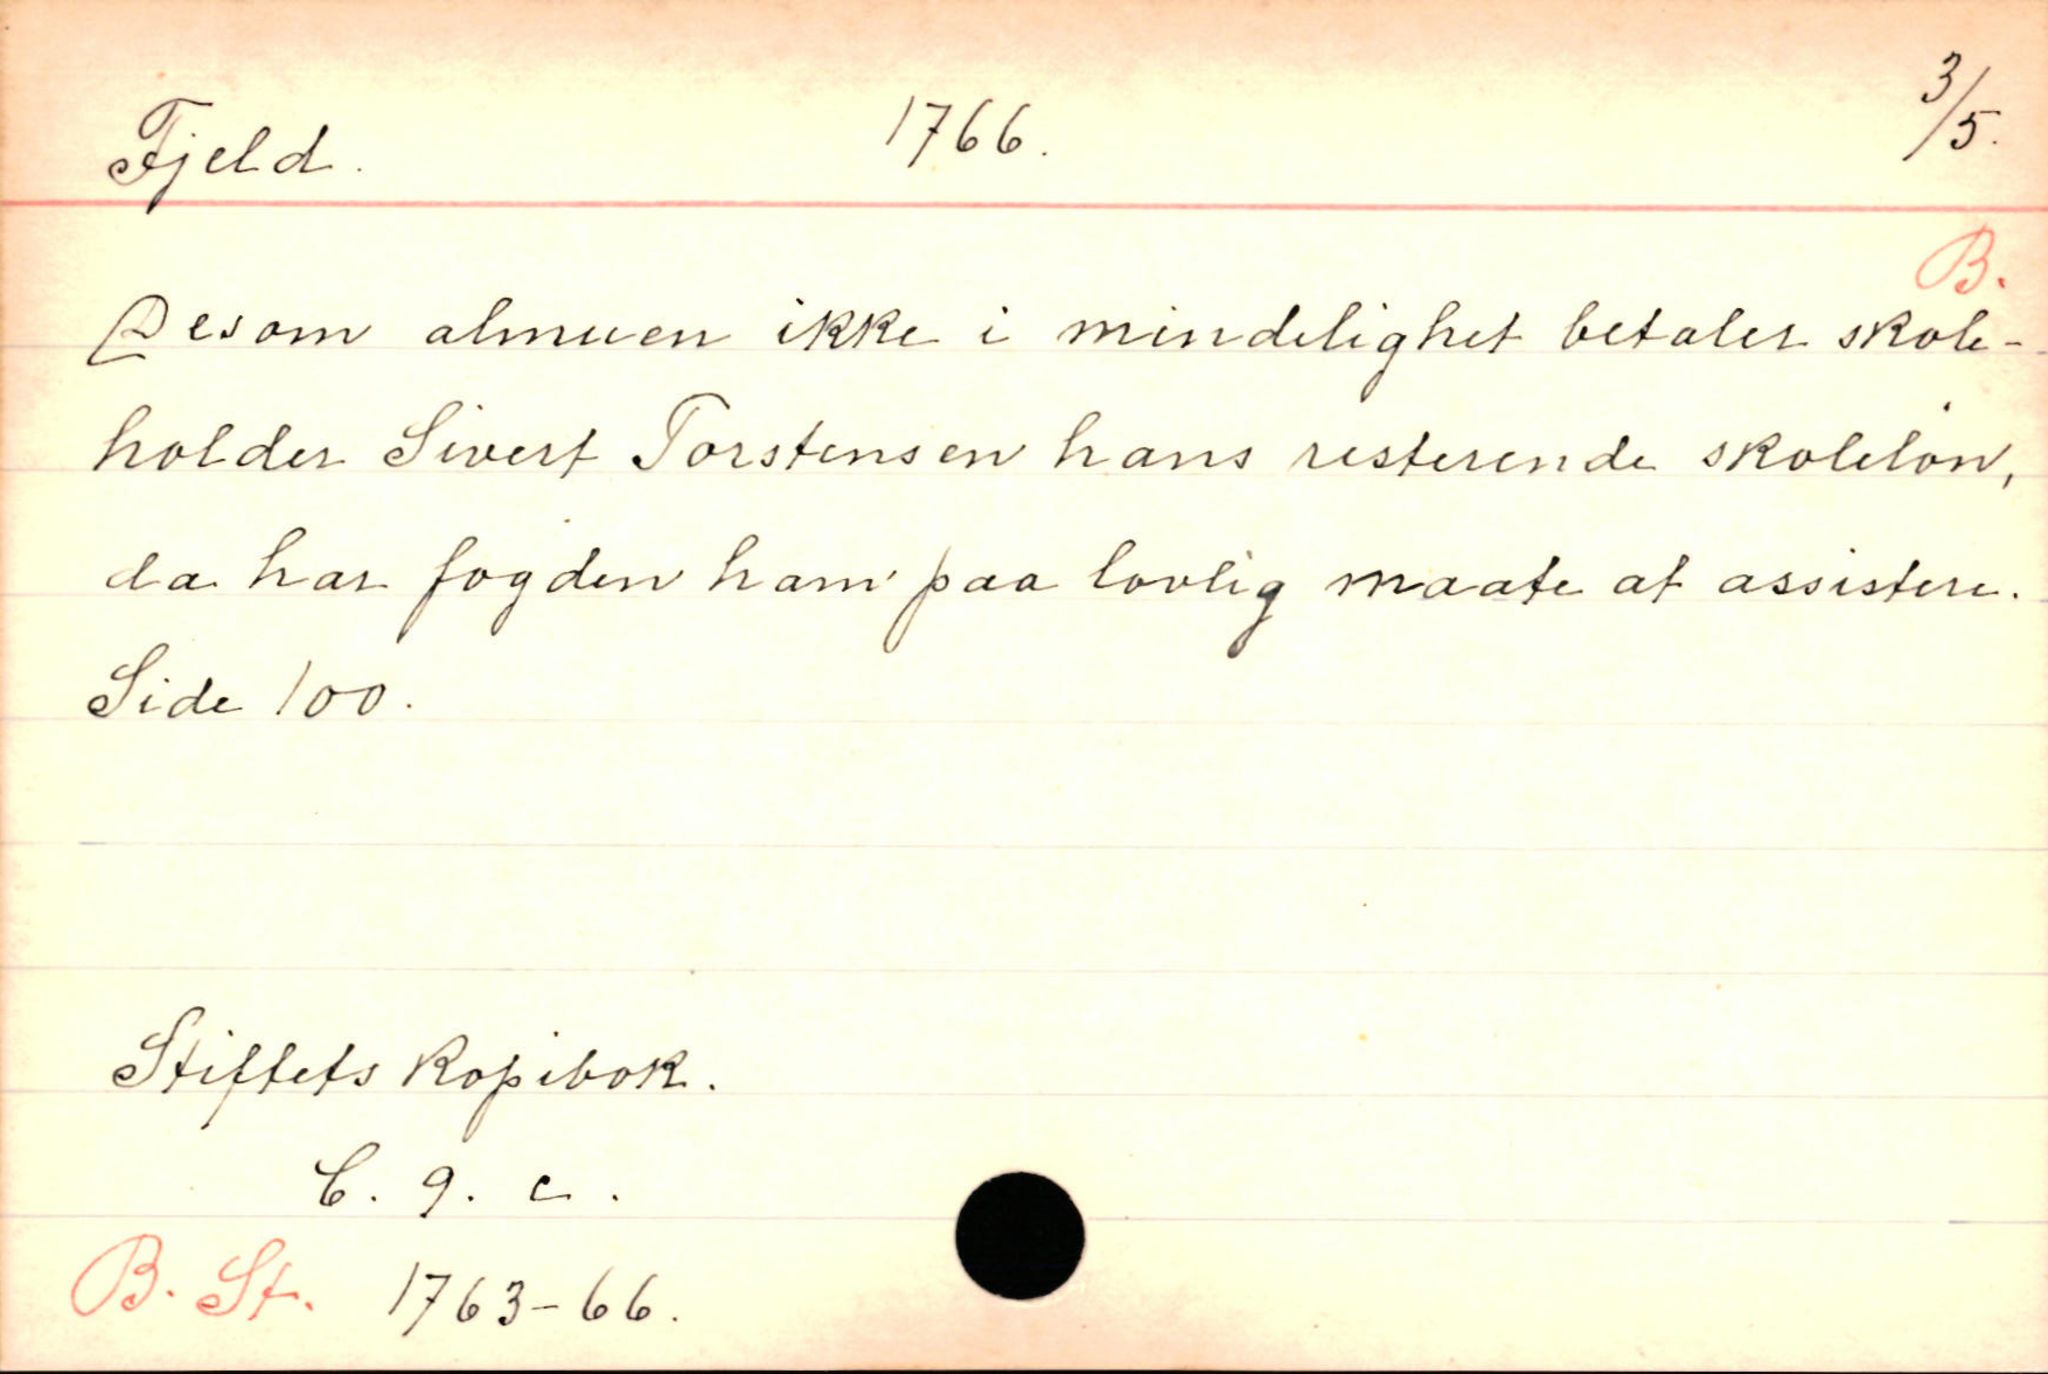 Fjeld. 1766. 3/5.
B.
Desom almuen ikke i mindelighet betaler skole-
holder Sivert Torstensen hans resterende skoleløn,
da har fogden ham paa lovlig maate at assistere.
Side 100.
Stiftets Kopibok.
C. 9. c.
B. St. 1763-66.